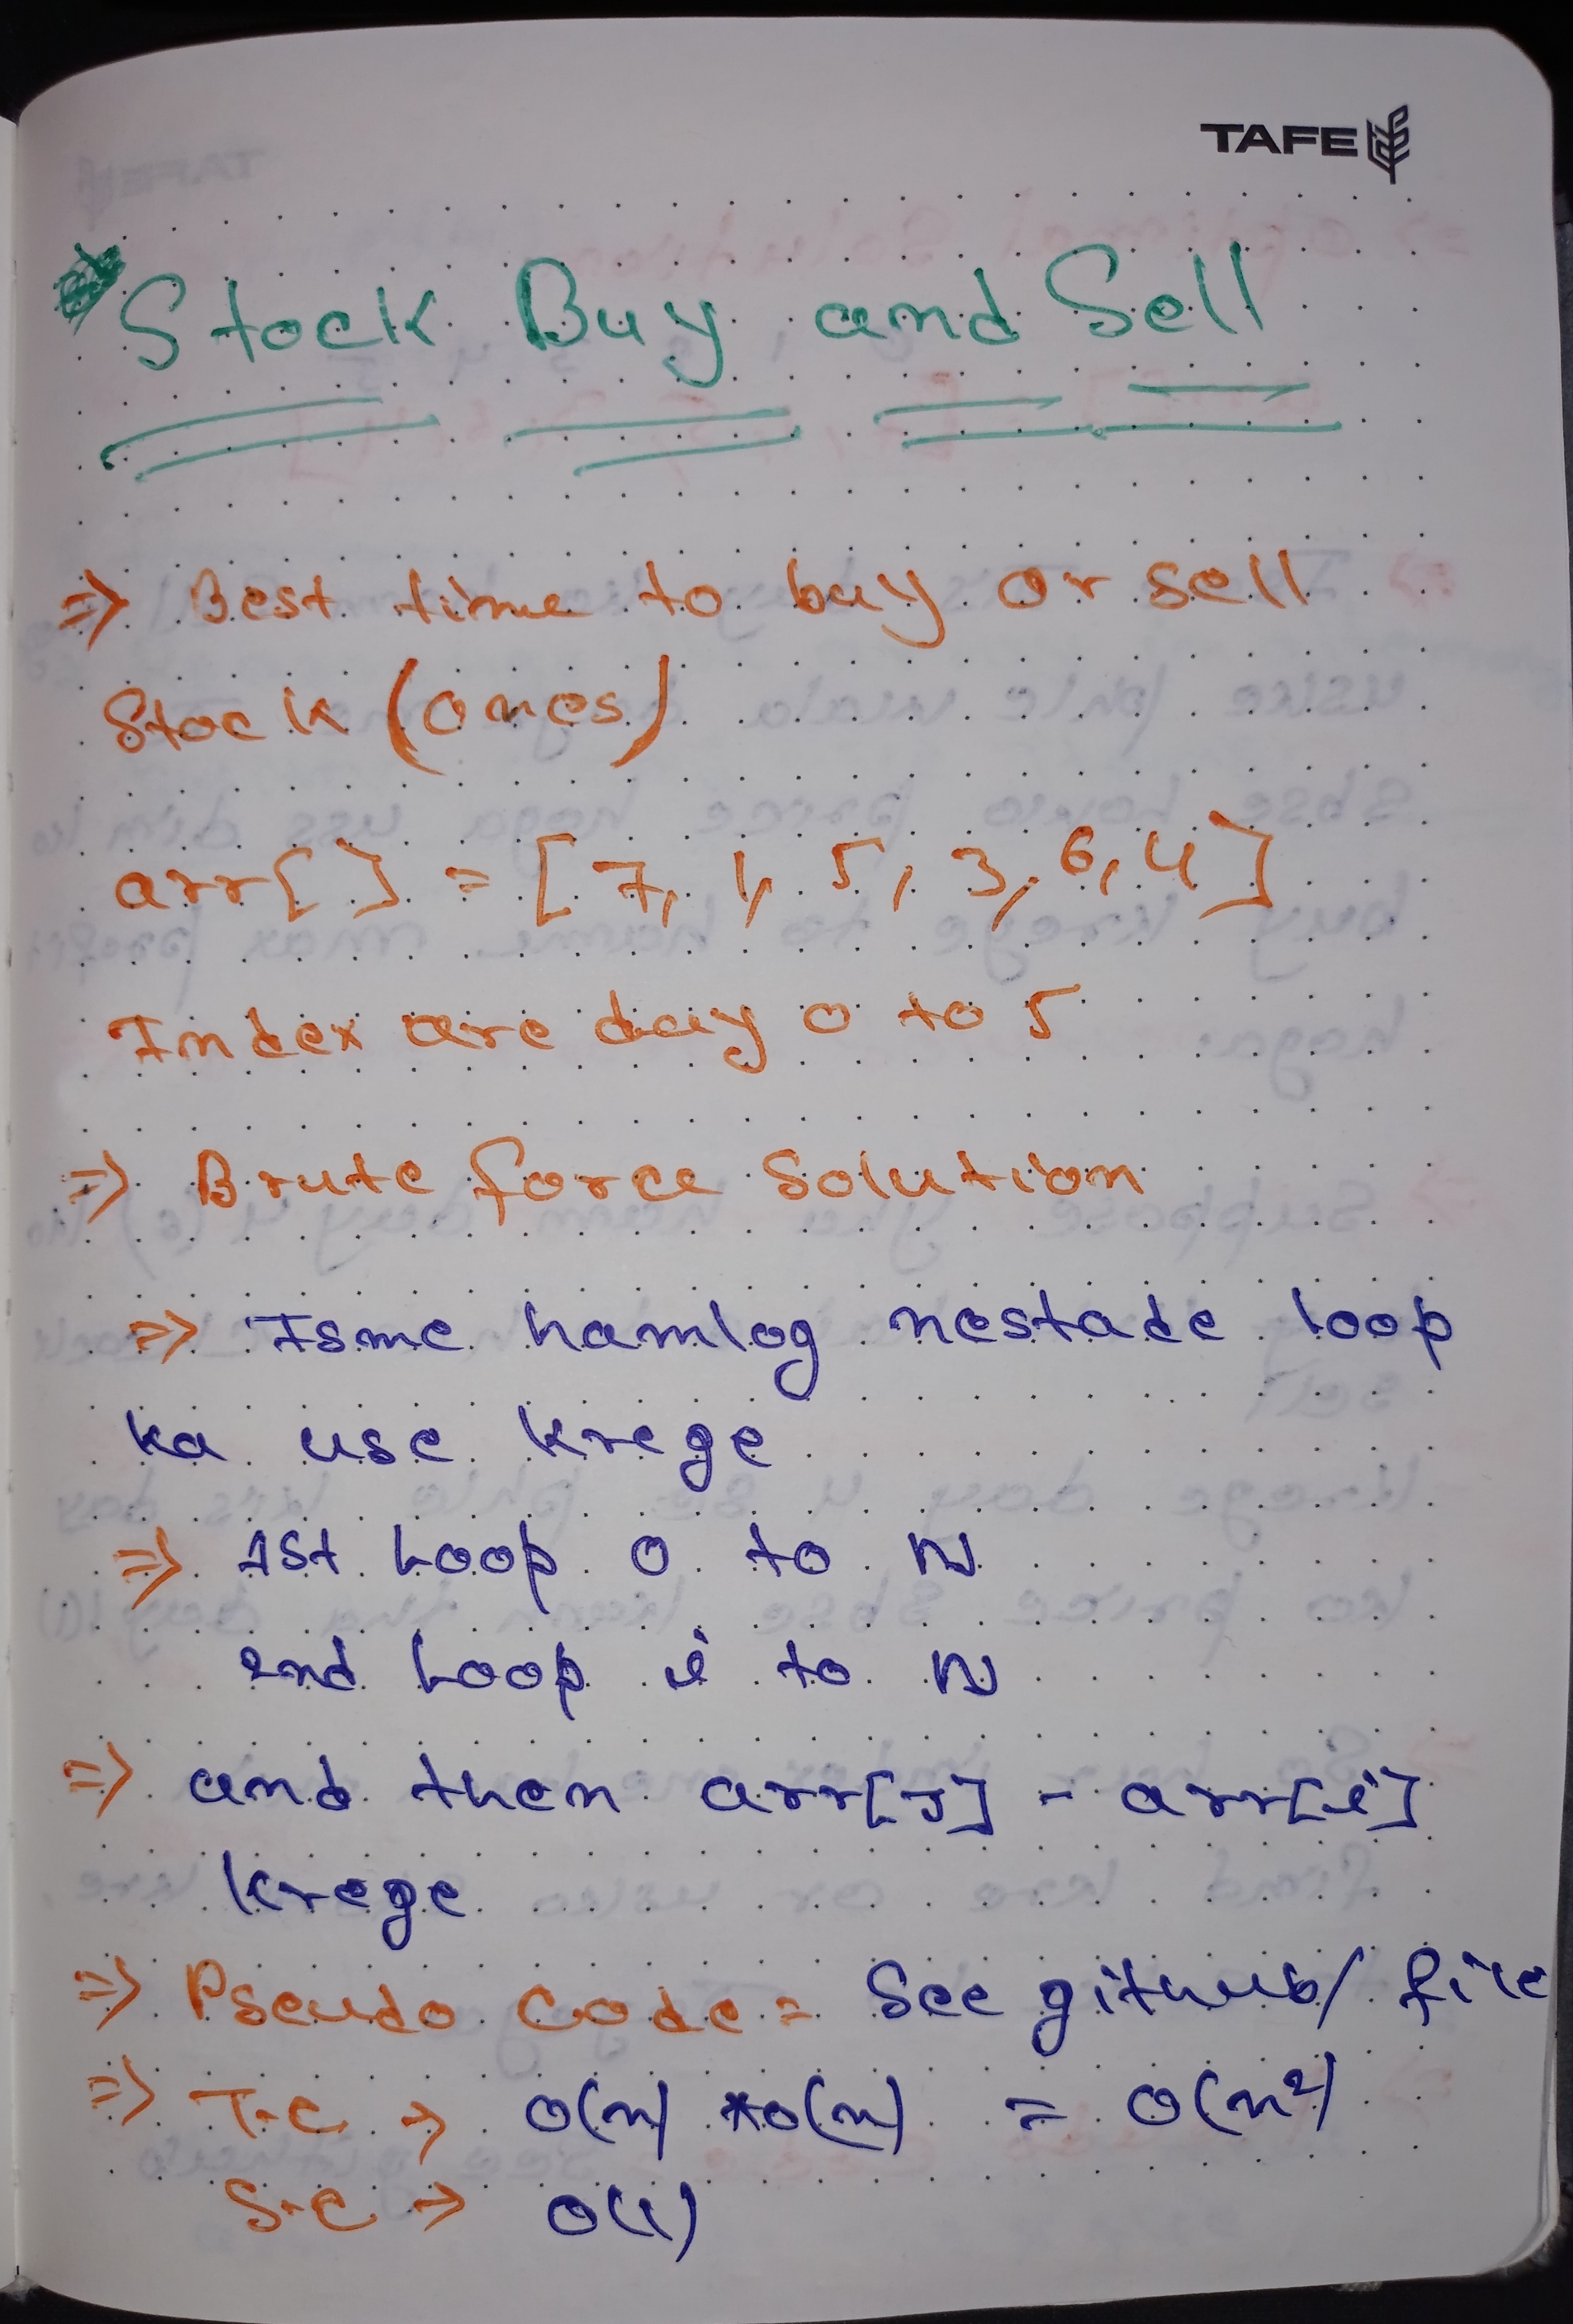 TAFE
Stock Buy and Sell
⇒ Best time to buy or sell
Stock (ones)
arr[] = [7, 1, 5, 3, 6, 4]
Index are day 0 to 5
⇒ Brute force Solution
⇒ Isme hamlog nestade loop
ka use krege
⇒ 1st Loop 0 to N
2nd Loop i to N
⇒ and then arr[J] - arr[i]
krege
⇒ Pseudo code = See github/ file
⇒ T.C → O(n) * O(n) = O(n²)
S.C → O(1)